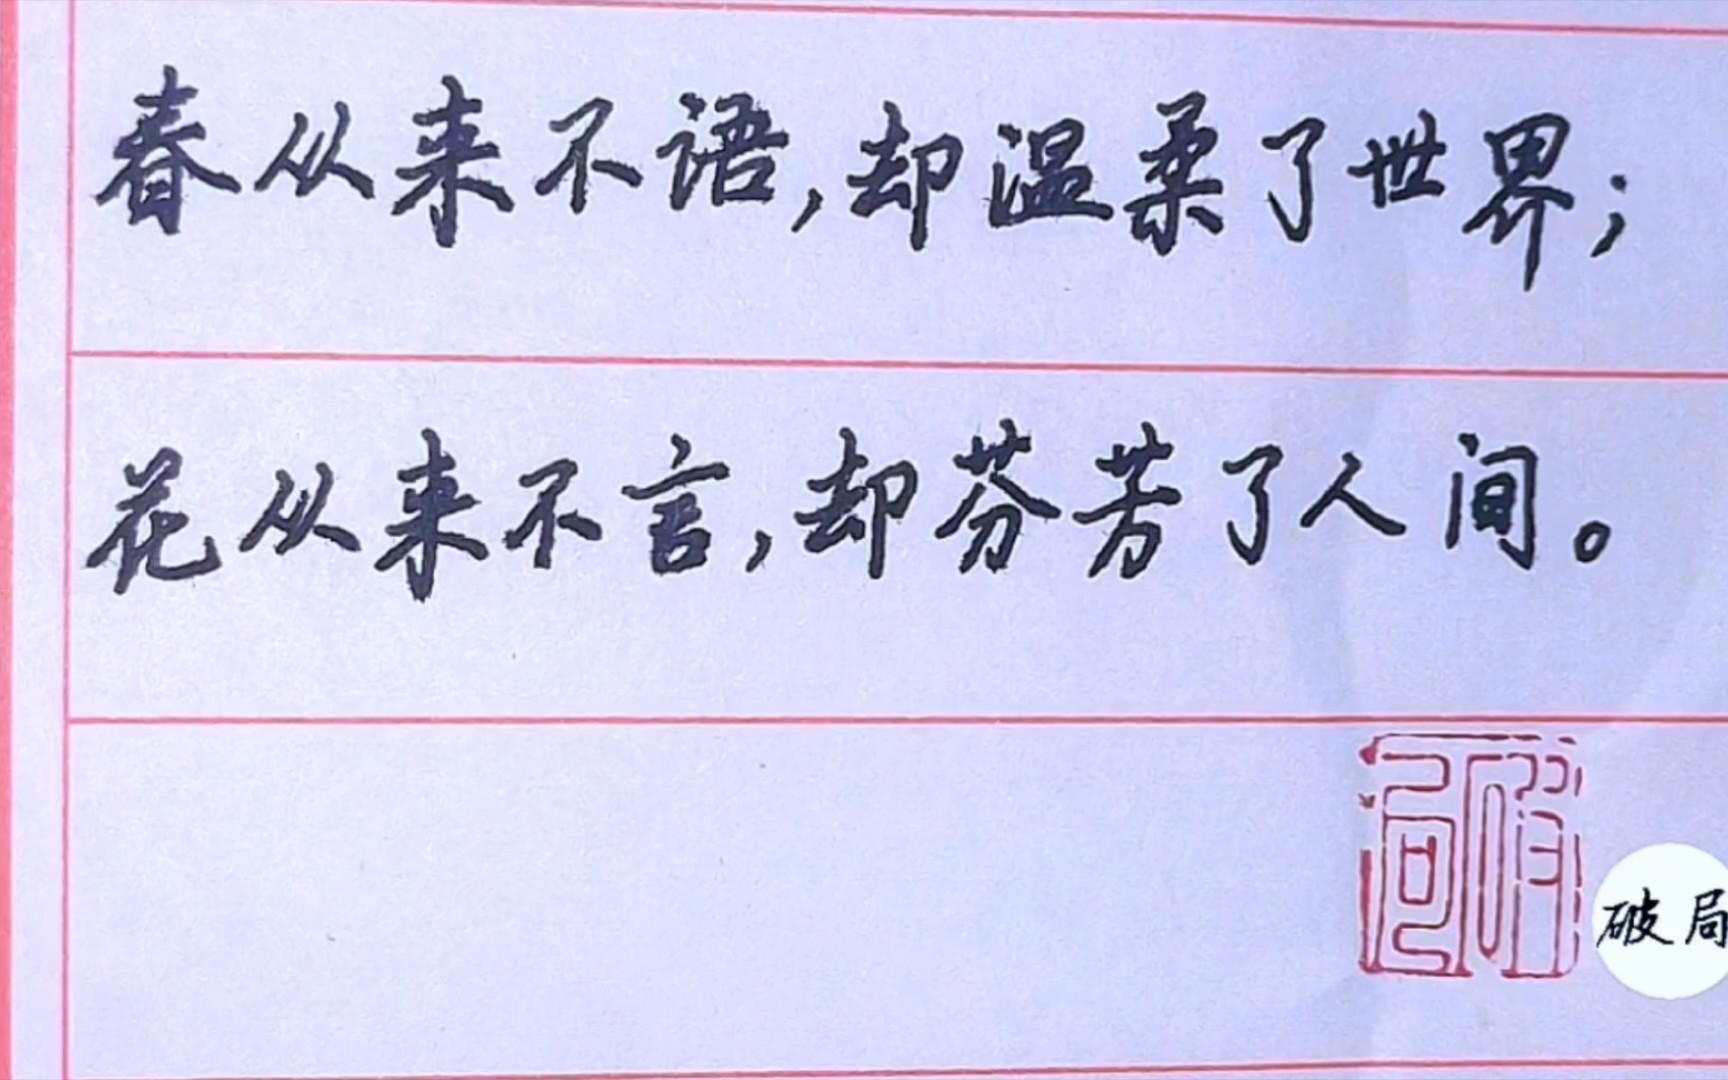 春从来不语，却温柔了世界；
花从来不言，却芬芳了人间。
破局